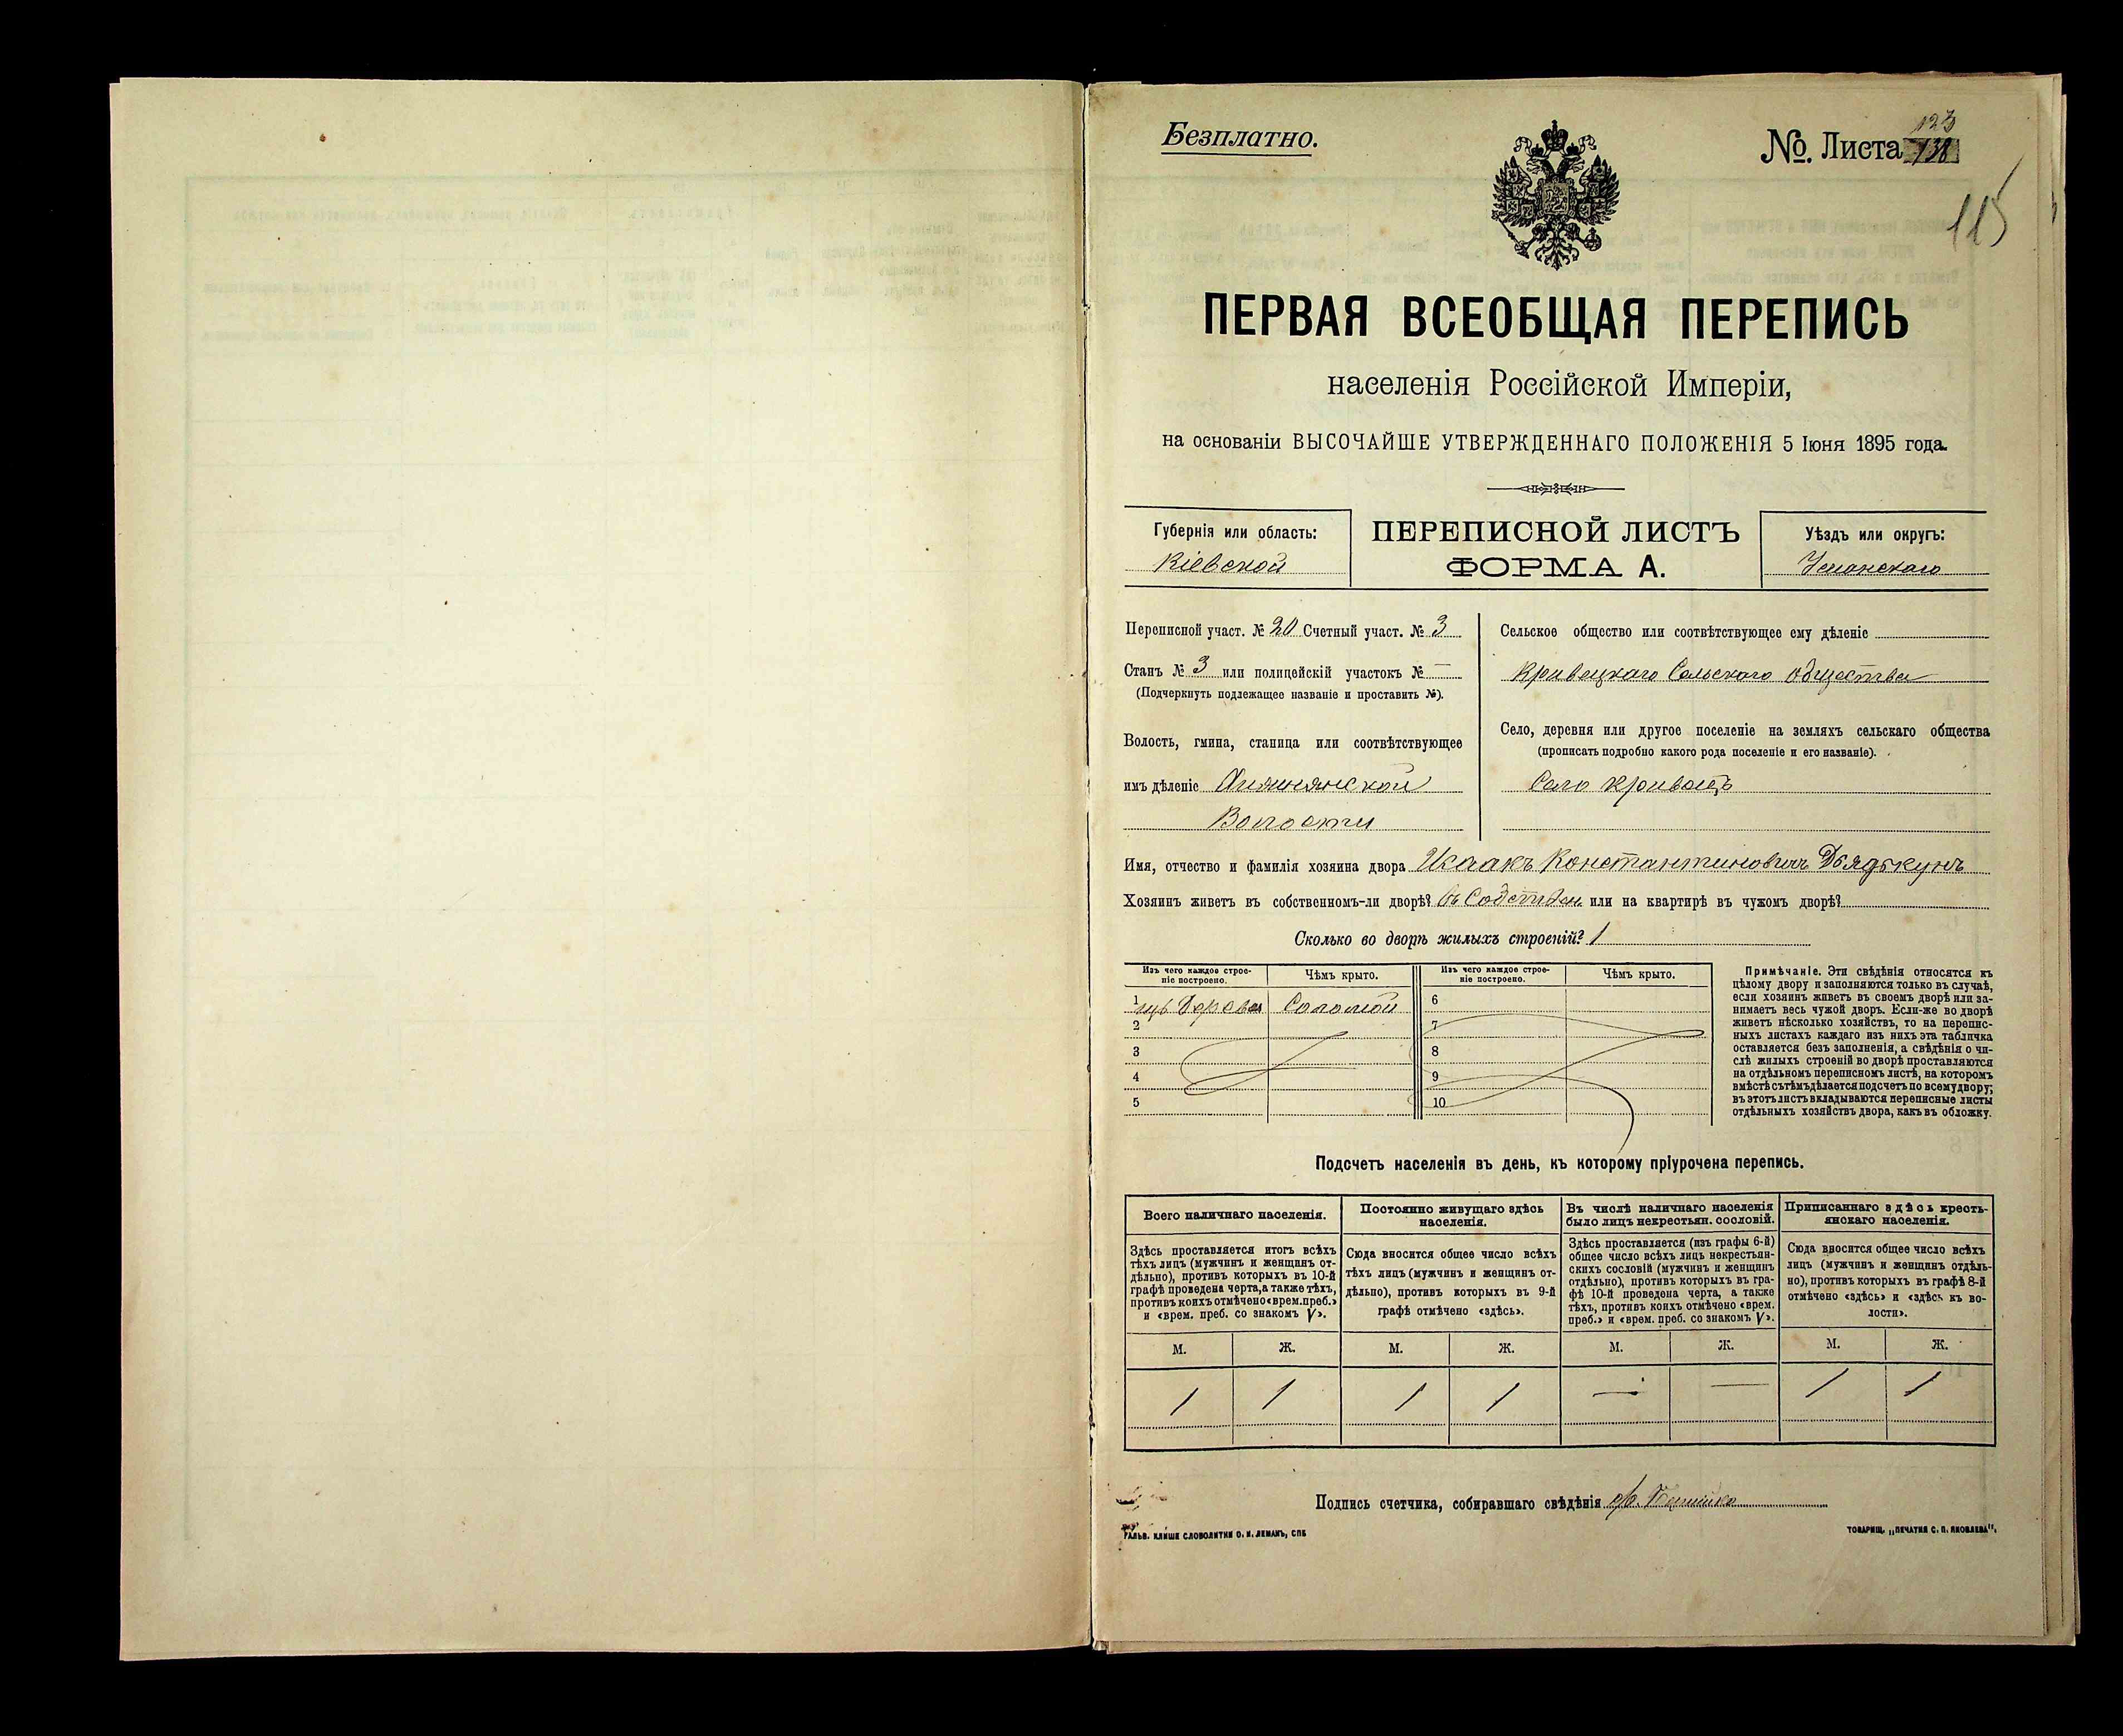 Безплатно.
№. Листа 123
138
115
ПЕРВАЯ ВСЕОБЩАЯ ПЕРЕПИСЬ
населенія Россійской Имперіи,
на основаніи ВЫСОЧАЙШЕ УТВЕРЖДЕННАГО ПОЛОЖЕНІЯ 5 Іюня 1895 года.
Губернія или область:
Кіевской
ПЕРЕПИСНОЙ ЛИСТЪ
ФОРМА А.
Уѣздъ или округъ:
Уманскаго
Переписной участ. № 20 Счетный участ. № 3
Станъ № 3 или полицейскій участокъ № —
(Подчеркнуть подлежащее названіе и проставить №).
Волость, гмина, станица или соотвѣтствующее
имъ дѣленіе
Волости
Сельское общество или соотвѣтствующее ему дѣленіе
Кривецкаго Сельскаго Общества
Село, деревня или другое поселеніе на земляхъ сельскаго общества
(прописать подробно какого рода поселеніе и его названіе).
Село Кривецъ
Имя, отчество и фамилія хозяина двора Исаакъ Константиновичъ Дядькунъ
Хозяинъ живетъ въ собственномъ-ли дворѣ? въ Собствен. или на квартирѣ въ чужомъ дворѣ?
Сколько во дворѣ жилыхъ строеній? 1
Изъ чего каждое строе-
ніе построено.
Чѣмъ крыто.
Изъ чего каждое строе-
ніе построено.
Чѣмъ крыто.
1 изъ Дерева Соломой
2
3
4
5
6
7
8
9
10
Примѣчаніе. Эти свѣдѣнія относятся къ
цѣлому двору и заполняются только въ случаѣ,
если хозяинъ живетъ въ своемъ дворѣ или за-
нимаетъ весь чужой дворъ. Если-же во дворѣ
живетъ нѣсколько хозяйствъ, то на перепис-
ныхъ листахъ каждаго изъ нихъ эта табличка
оставляется безъ заполненія, а свѣдѣнія о чи-
слѣ жилыхъ строеній во дворѣ проставляются
на отдѣльномъ переписномъ листѣ, на которомъ
вмѣстѣ съ тѣмъ дѣлается подсчетъ по всему двору;
въ этотъ листъ вкладываются переписные листы
отдѣльныхъ хозяйствъ двора, какъ въ обложку.
Подсчетъ населенія въ день, къ которому пріурочена перепись.
Всего наличнаго населенія.
Здѣсь проставляется итогъ всѣхъ
тѣхъ лицъ (мужчинъ и женщинъ от-
дѣльно), противъ которыхъ въ 10-й
графѣ проведена черта, а также тѣхъ,
противъ коихъ отмѣчено «врем. преб.»
и «врем. преб. со знакомъ V».
Постоянно живущаго здѣсь
населенія.
Сюда вносится общее число всѣхъ
тѣхъ лицъ (мужчинъ и женщинъ от-
дѣльно), противъ которыхъ въ 9-й
графѣ отмѣчено «здѣсь».
Въ числѣ наличнаго населенія
было лицъ некрестьян. сословій.
Здѣсь проставляется (изъ графы 6-й)
общее число всѣхъ лицъ некрестьян-
скихъ сословій (мужчинъ и женщинъ
отдѣльно), противъ которыхъ въ гра-
фѣ 10-й проведена черта, а также
тѣхъ, противъ коихъ отмѣчено «врем.
преб.» и «врем. преб. со знакомъ V».
Приписаннаго здѣсь кресть-
янскаго населенія.
Сюда вносится общее число всѣхъ
лицъ (мужчинъ и женщинъ отдѣль-
но), противъ которыхъ въ графѣ 8-й
отмѣчено «здѣсь» и «здѣсь къ во-
лости».
М. Ж. М. Ж. М. Ж. М. Ж.
1 1 1 1 — — 1 1
Подпись счетчика, собиравшаго свѣдѣнія
ГАЛЬВ. КЛИШЕ СЛОВОЛИТНИ О. И. ЛЕМАНЪ, СПБ
ТОВАРИЩ. „ПЕЧАТНЯ С. П. ЯКОВЛЕВА".